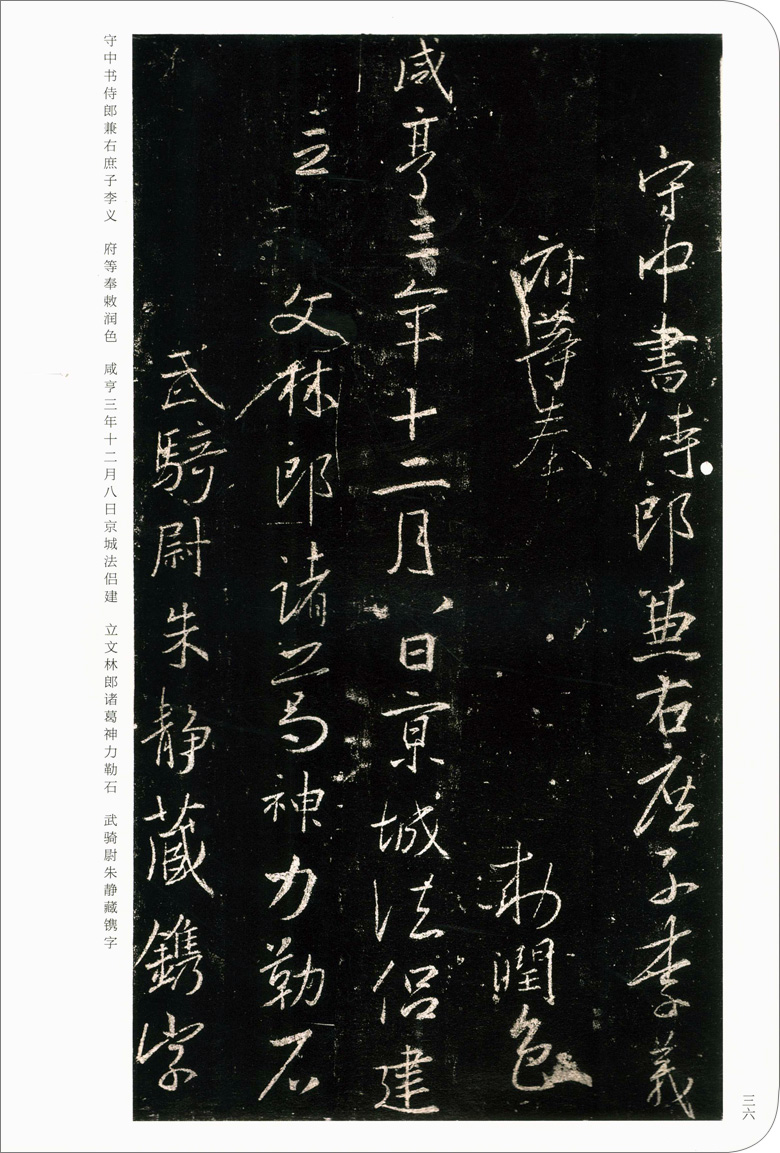 守中書侍郎兼右庶子李義
府等奉 敕潤色
咸亨三年十二月八日京城法侣建
立 文林郎諸葛神力勒石
武騎尉朱静藏鐫字
守中书侍郎兼右庶子李义 府等奉敕润色 咸亨三年十二月八日京城法侣建 立文林郎诸葛神力勒石 武骑尉朱静藏镌字
三六